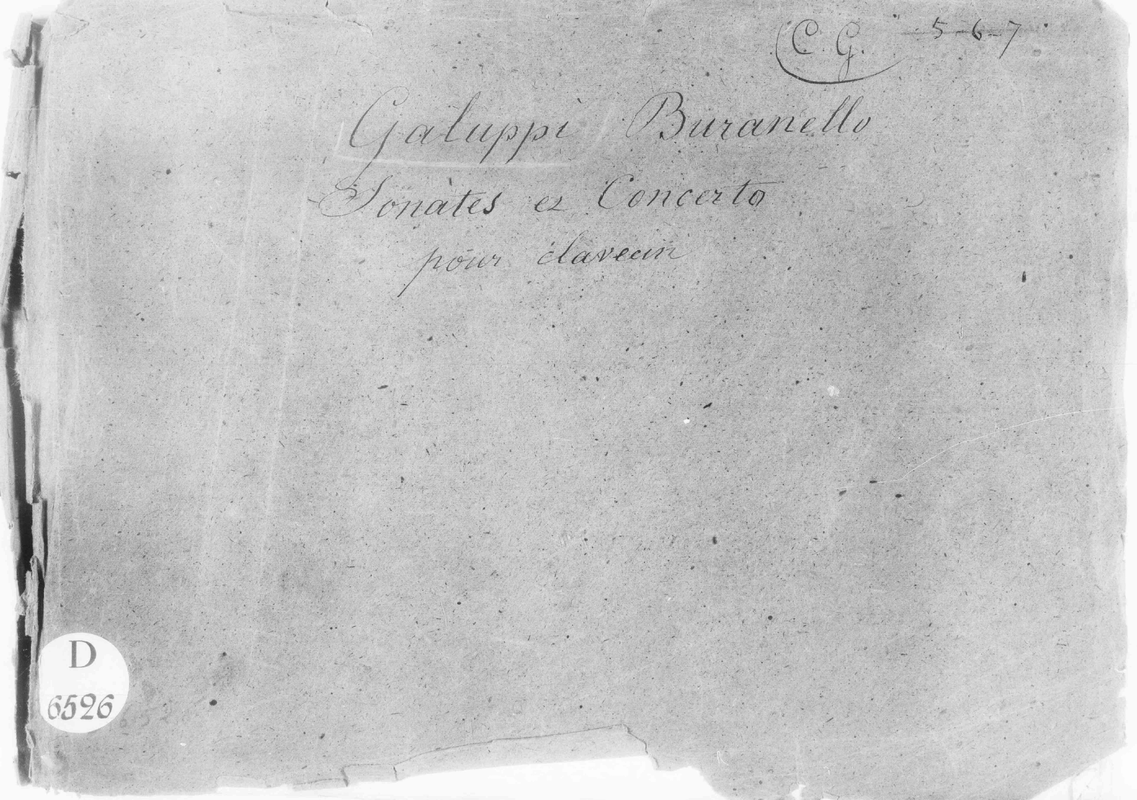 C. G. 5-6-7
Galuppi Buranello
Sonates et Concerto
pour clavecin
D
6526